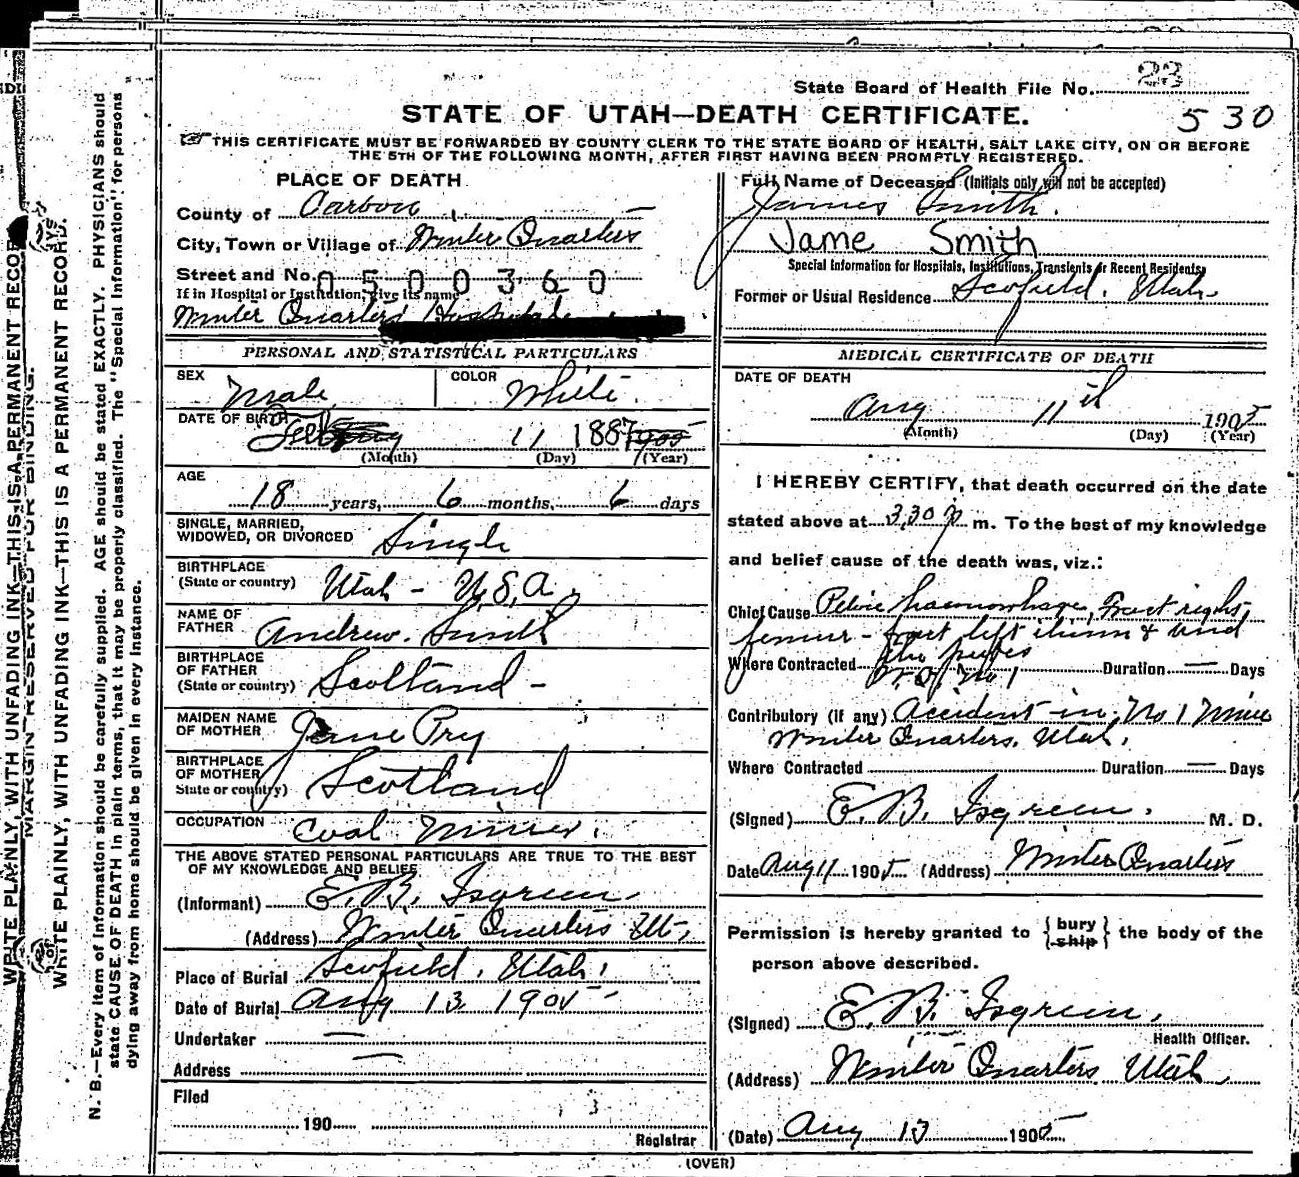 State Board of Health File No. 23
530
STATE OF UTAH—DEATH CERTIFICATE.
THIS CERTIFICATE MUST BE FORWARDED BY COUNTY CLERK TO THE STATE BOARD OF HEALTH, SALT LAKE CITY, ON OR BEFORE
THE 5TH OF THE FOLLOWING MONTH, AFTER FIRST HAVING BEEN PROMPTLY REGISTERED.
PLACE OF DEATH
County of Carbon
City, Town or Village of Winter Quarters
Street and No. 0500360
If in Hospital or Institution, give its name
Winter Quarters Hospital
PERSONAL AND STATISTICAL PARTICULARS
SEX Male COLOR White.
DATE OF BIRTH Feb 11 1887
(Month) (Day) (Year)
AGE
18 years, 6 months, 6 days
SINGLE, MARRIED,
WIDOWED, OR DIVORCED Single
BIRTHPLACE
(State or country) Utah - U.S.A
NAME OF
FATHER Andrew. Smith
BIRTHPLACE
OF FATHER
(State or country) Scotland -
MAIDEN NAME
OF MOTHER Jane Pry
BIRTHPLACE
OF MOTHER
State or country) Scotland
OCCUPATION Coal Miner.
THE ABOVE STATED PERSONAL PARTICULARS ARE TRUE TO THE BEST
OF MY KNOWLEDGE AND BELIEF.
(Informant) E. B. Isgreen.
(Address) Winter Quarters Ut.
Place of Burial Scofield, Utah.
Date of Burial Aug 13 1905
Undertaker —
Address —
Filed
190
Registrar
Full Name of Deceased (Initials only will not be accepted)
James Smith.
Jame Smith
Special Information for Hospitals, Institutions, Transients or Recent Residents
Former or Usual Residence Scofield. Utah
MEDICAL CERTIFICATE OF DEATH
DATE OF DEATH
Aug 11th 1905
(Month) (Day) (Year)
I HEREBY CERTIFY, that death occurred on the date
stated above at 3.30 p m. To the best of my knowledge
and belief cause of the death was, viz.:
Chief Cause Pelvic haemorrhage, Fract right
femur - fract left ilium &
the pubes
Where Contracted No 1 Duration — Days
Contributory (if any) Accident in No 1 Mine
Winter Quarters, Utah.
Where Contracted Duration — Days
(Signed) E. B. Isgreen. M. D.
Date Aug 11 1905 (Address) Winter Quarters
Permission is hereby granted to { bury ship } the body of the
person above described.
(Signed) E. B. Isgreen.
Health Officer.
(Address) Winter Quarters Utah
(Date) Aug 13 1905
(OVER)
MARGIN RESERVED FOR BINDING.
WRITE PLAINLY, WITH UNFADING INK—THIS IS A PERMANENT RECORD
WRITE PLAINLY, WITH UNFADING INK—THIS IS A PERMANENT RECORD.
N. B.—Every item of information should be carefully supplied. AGE should be stated EXACTLY. PHYSICIANS should
state CAUSE OF DEATH in plain terms, that it may be properly classified. The "Special Information" for persons
dying away from home should be given in every instance.